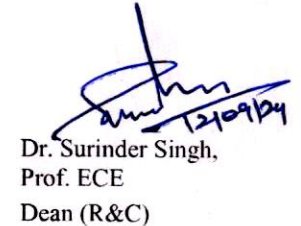 12/09/24
Dr. Surinder Singh,
Prof. ECE
Dean (R&C)